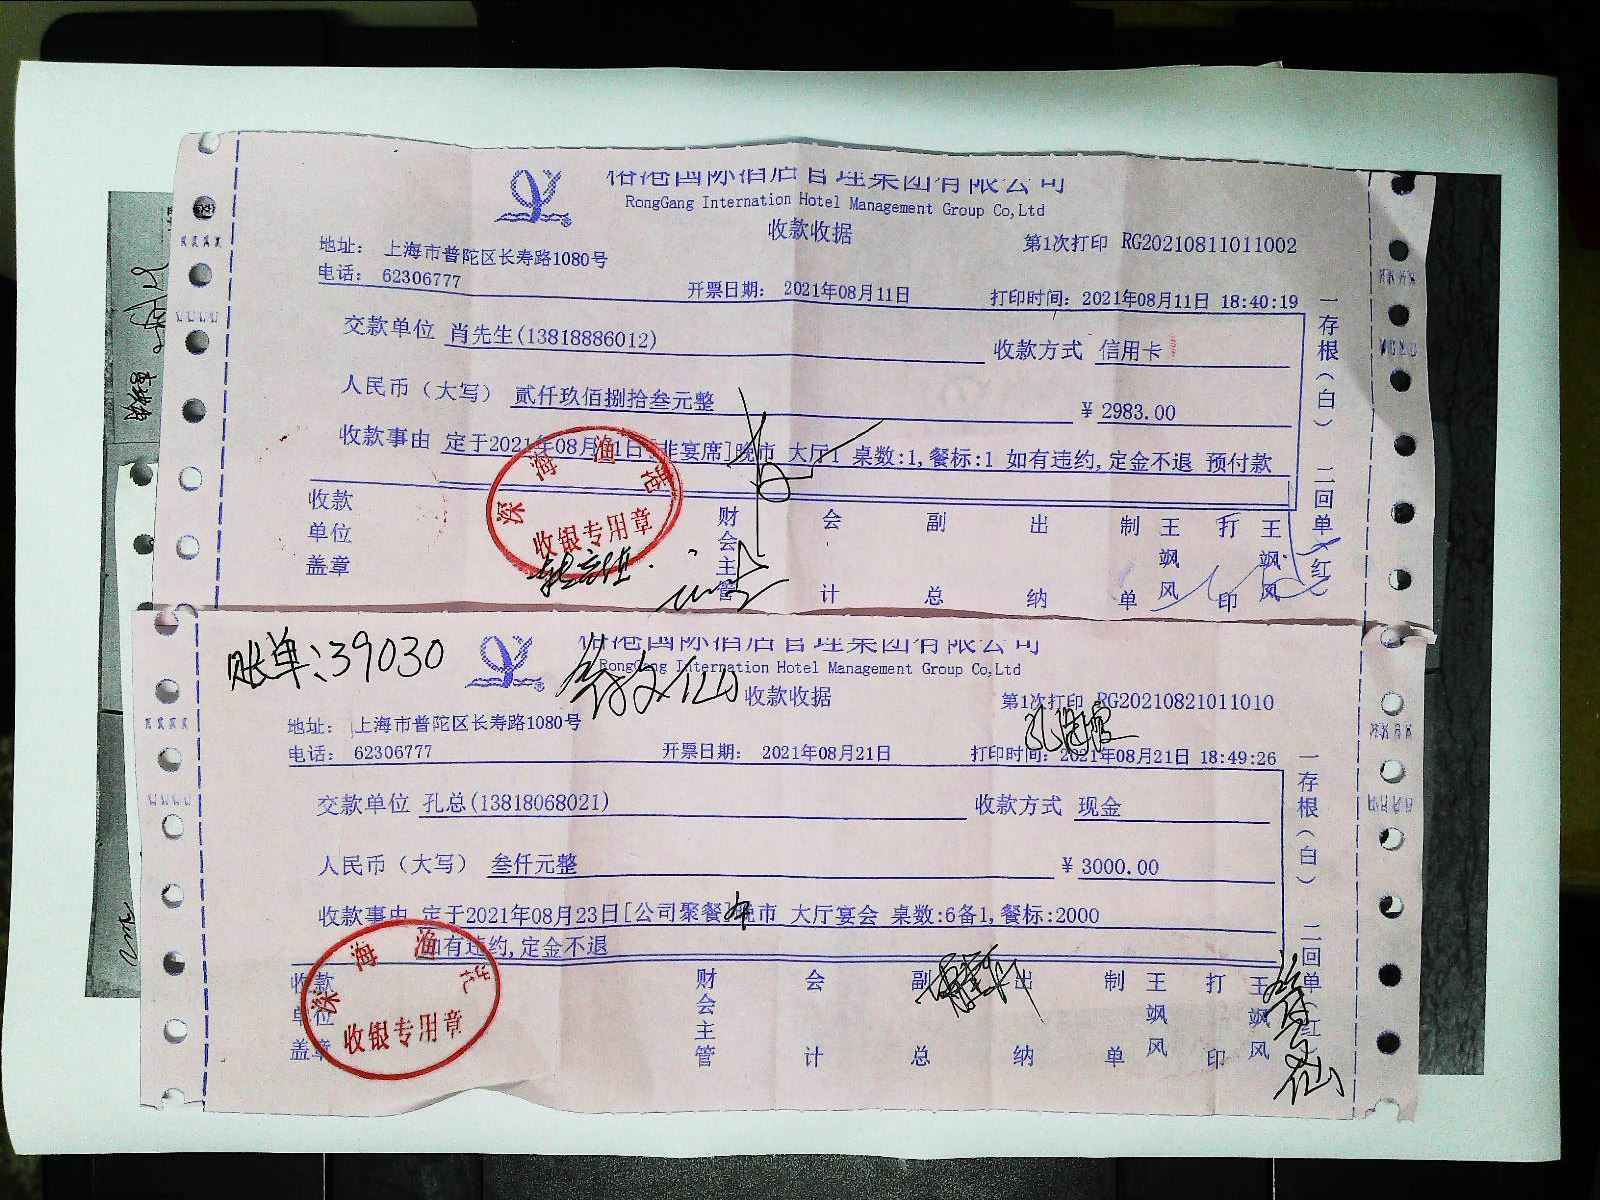 裕港国际酒店管理集团有限公司
RongGang Internation Hotel Management Group Co,Ltd
收款收据
第1次打印 RG20210811011002
地址： 上海市普陀区长寿路1080号
电话： 62306777
开票日期： 2021年08月11日
打印时间：2021年08月11日 18:40:19
交款单位 肖先生(13818886012)
收款方式 信用卡
人民币（大写） 贰仟玖佰捌拾叁元整
￥2983.00
收款事由 定于2021年08月11日[非宴席]晚市 大厅1 桌数:1,餐标:1 如有违约,定金不退 预付款
深海渔港
收银专用章
收款单位盖章
财会主管
会计
副总
出纳
制单
王飒风
打印
王飒风
一存根（白） 二回单（红）
账单:39030
裕港国际酒店管理集团有限公司
RongGang Internation Hotel Management Group Co,Ltd
收款收据
第1次打印 RG20210821011010
地址： 上海市普陀区长寿路1080号
电话： 62306777
开票日期： 2021年08月21日
打印时间：2021年08月21日 18:49:26
交款单位 孔总(13818068021)
收款方式 现金
人民币（大写） 叁仟元整
￥3000.00
收款事由 定于2021年08月23日[公司聚餐]晚市 大厅宴会 桌数:6备1,餐标:2000
如有违约,定金不退
深海渔港
收银专用章
收款单位盖章
财会主管
会计
副总
出纳
制单
王飒风
打印
王飒风
一存根（白） 二回单（红）